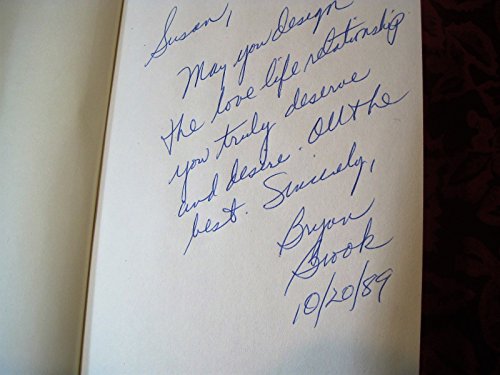 Susan,
May you design
the love life relationship
you truly deserve
and desire. All the
best. Sincerely,
Bryan
Brook
10/20/89